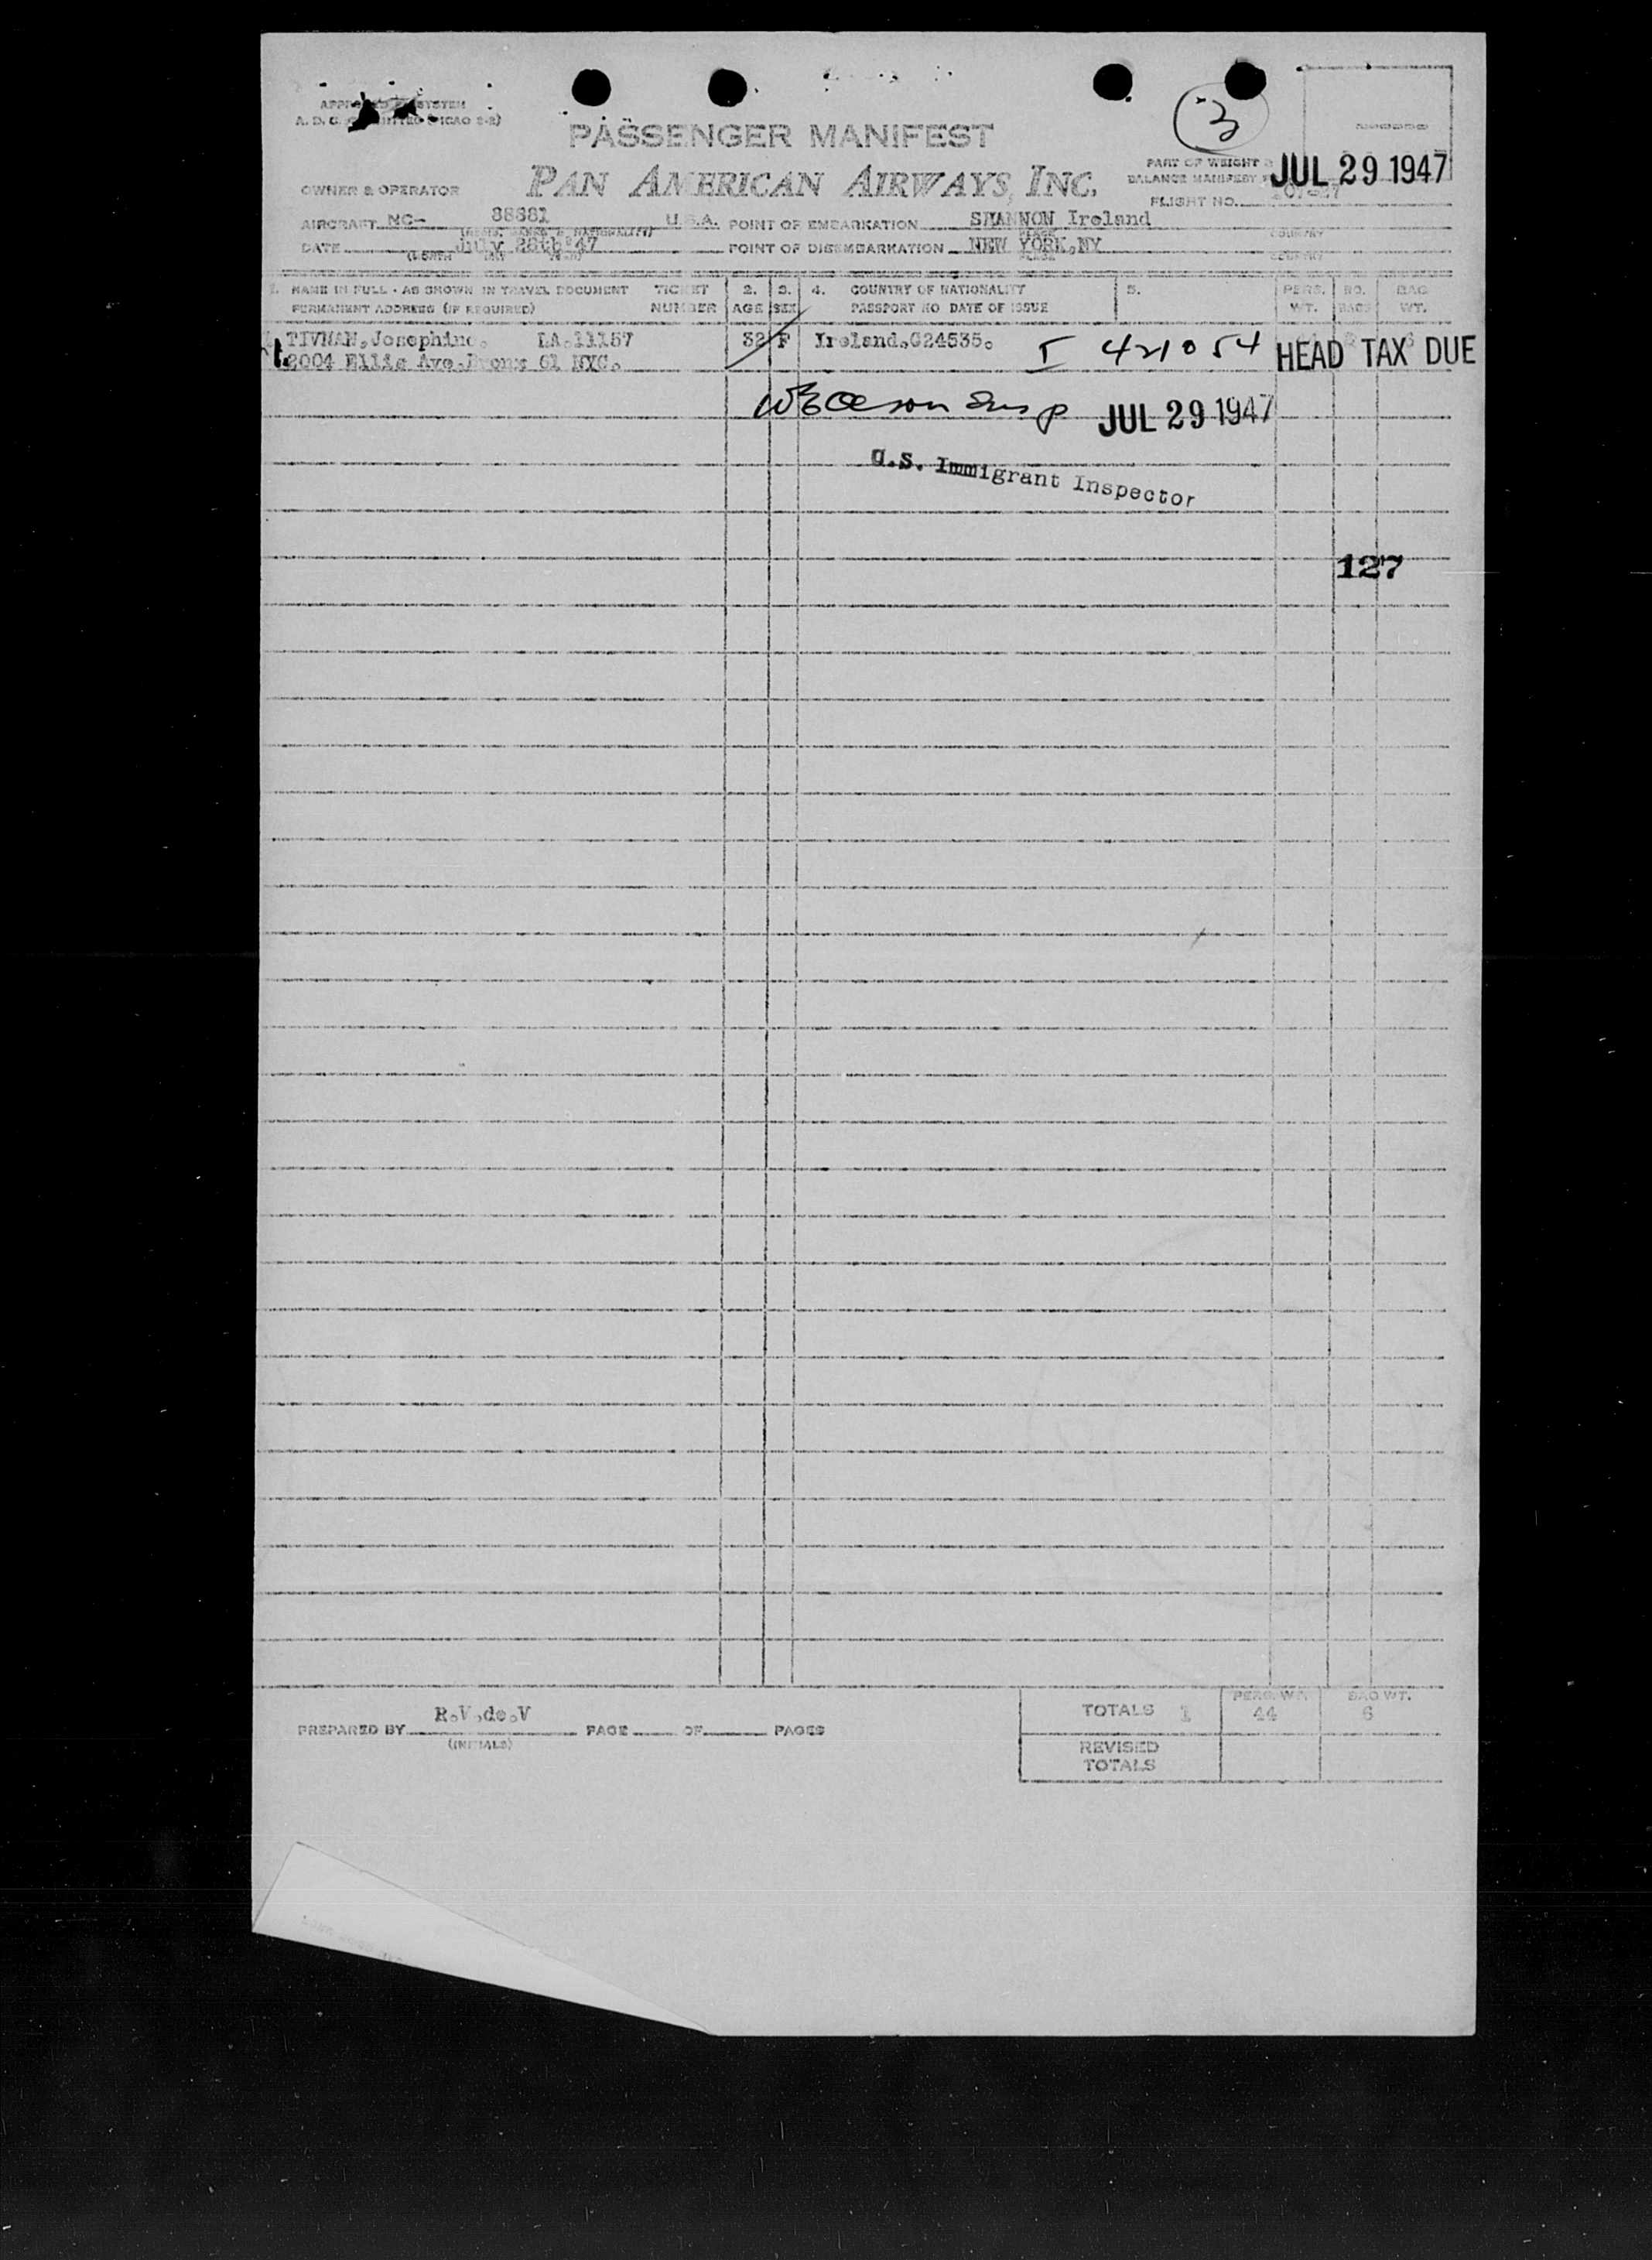 PASSENGER MANIFEST
3
PAN AMERICAN AIRWAYS, INC.
PART OF WEIGHT &
BALANCE MANIFEST
JUL 29 1947
OWNER & OPERATOR
FLIGHT NO.
AIRCRAFT NC- 88881 U.S.A. POINT OF EMBARKATION SHANNON Ireland
PLACE COUNTRY
DATE July 28th '47 POINT OF DISEMBARKATION NEW YORK, NY
PLACE COUNTRY
1. NAME IN FULL - AS SHOWN IN TRAVEL DOCUMENT TICKET 2. 3. 4. COUNTRY OF NATIONALITY 5. PERS. NO. BAG
PERMANENT ADDRESS (IF REQUIRED) NUMBER AGE SEX PASSPORT NO DATE OF ISSUE WT. BAGS WT.
TIVNAN, Josephine. LA.11157 32 F Ireland.G24535. I 421054 HEAD TAX DUE
2004 Ellis Ave. Bronx 61 NYC.
JUL 29 1947
U.S. Immigrant Inspector
127
R.V.de.V
PREPARED BY PAGE OF PAGES
(INITIALS)
PERS. WT. BAG WT.
TOTALS 1 44 6
REVISED
TOTALS